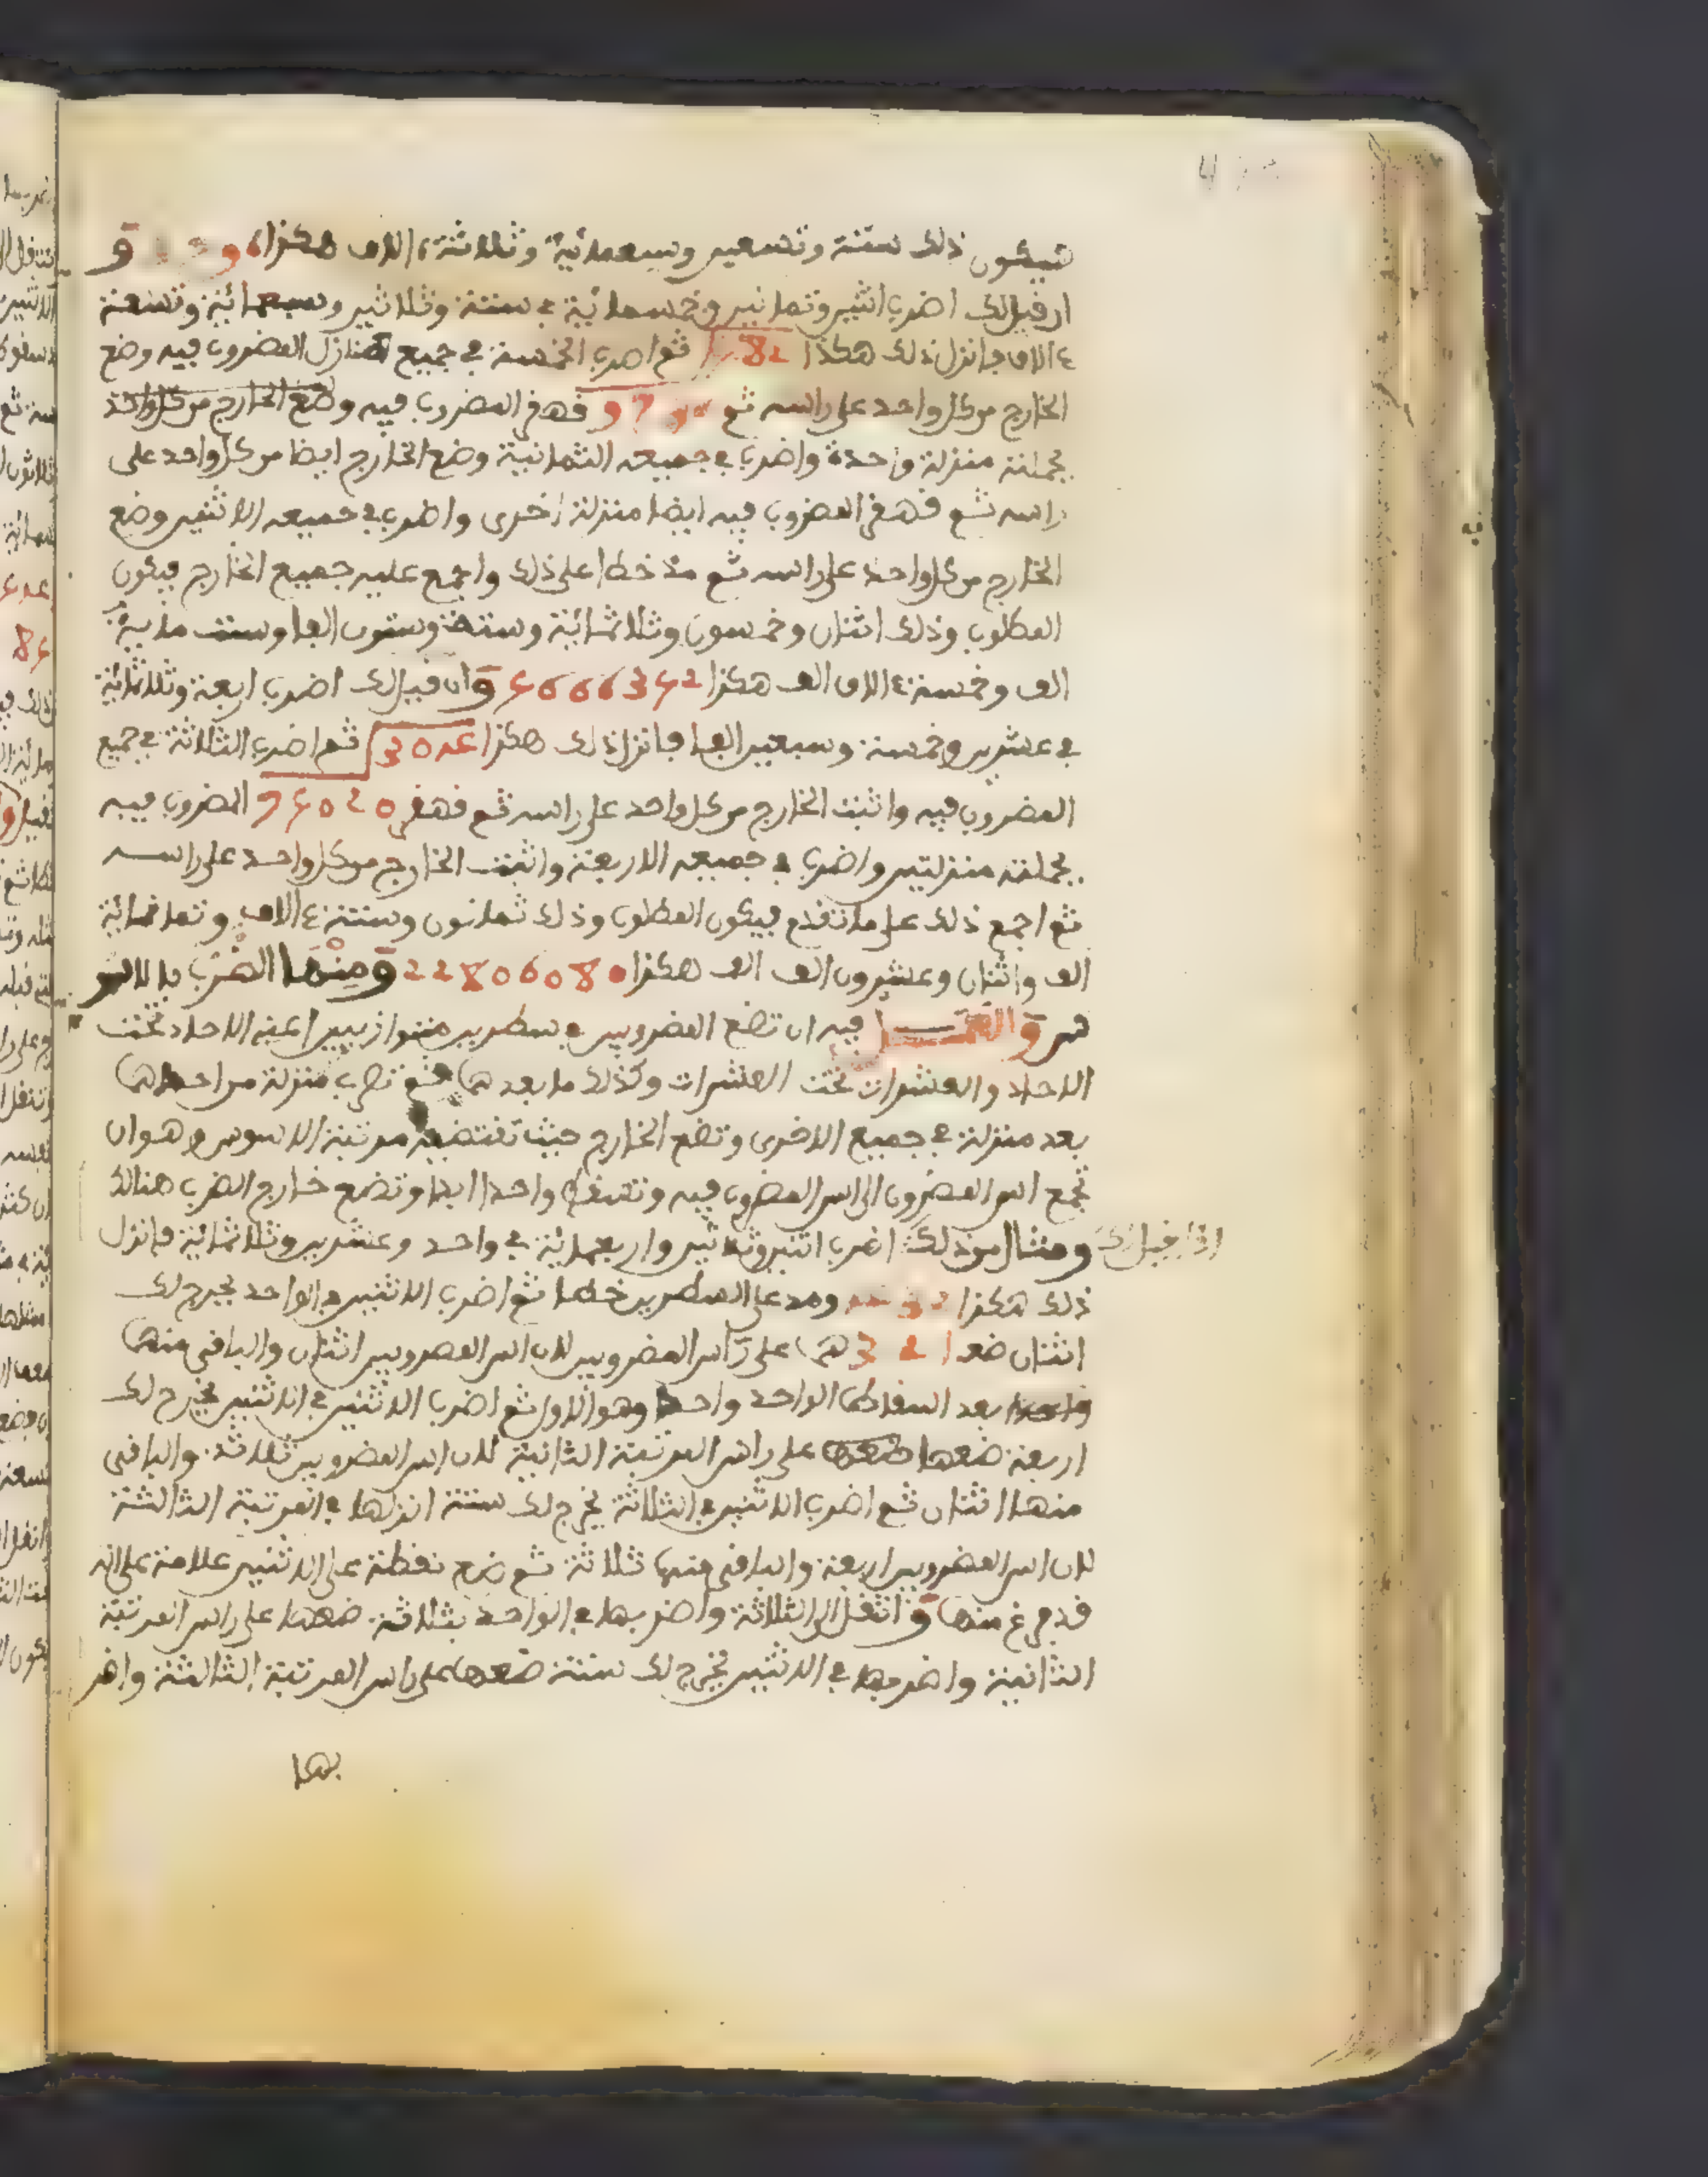 فيكون ذلك ستة وتسعين وسبعمائة وثلاثة ءالاف هكذا و
ان قيل لك اضرب اثنين وثمانين وخمسمائة في ستة وثلاثين وسبعمائة وتسعة
ءالاف فانزل ذلك هكذا 582 ثم اضرب الخمسة في جميع منازل المضروب فيه وضع
الخارج من كل واحد على راسه ثم 9736 قهقر المضروب فيه وضع الخارج من كل واحد
بجملته منزلة واحدة واضرب في جميعه الثمانية وضع الخارج ايضا من كل واحد على
راسه ثم قهقر المضروب فيه ايضا منزلة اخرى واضرب في جميعه الاثنين وضع
الخارج من كل واحد على راسه ثم مد خطا على ذلك واجمع عليه جميع الخارج فيكون
المطلوب وذلك اثنان وخمسون وثلاثمائة وستة وستون الفا وست مائة
الف وخمسة ءالاف الف هكذا 5666352 وان قيل لك اضرب اربعة وثلاثمائة
في عشرين وخمسة وسبعين الفا فانزل ذلك هكذا 304 ثم اضرب الثلاثة في جميع
المضروب فيه واثبت الخارج من كل واحد على راسه ثم قهقر 75020 المضروب فيه
بجملته منزلتين واضرب في جميعه الاربعة واثبت الخارج من كل واحد على راسه
ثم اجمع ذلك على ما تقدم فيكون المطلوب وذلك ثمانون وستة ءالاف وثمانمائة
الف واثنان وعشرون الف الف هكذا 22806080 ومنها الضرب بالاسو
س و فيه ان تضع المضروبين في سطرين متوازيين اعني الاحاد تحت
الاحاد والعشرات تحت العشرات وكذلك ما بعدهما ثم تضرب منزلة من احدهما
بعد منزلة في جميع الاخرى وتضع الخارج حيث تقتضيه مرتبة الاسوس وهو ان
تجمع اس المضروب الى اس المضروب فيه وتسقط واحدا ابدا وتضع خارج الضرب هنالك
اذا قيل لك ومثال من ذلك اضرب اثنين وثلاثين واربعمائة في واحد وعشرين وثلاثمائة فانزل
ذلك هكذا 432 ومد على السطرين خطا ثم اضرب الاثنين في الواحد يخرج لك
اثنان ضعـ 321 ـهما على راس المضروبين لان اس المضروبين اثنان والباقي منهما
بعد اسقاط الواحد واحد وهو الاول ثم اضرب الاثنين في الاثنين يخرج لك
اربعة ضعها على راس المرتبة الثانية لان اس المضروبين ثلاثة والباقي
منها اثنان ثم اضرب الاثنين في الثلاثة يخرج لك ستة انزلها في المرتبة الثالثة
لان اس المضروبين اربعة والباقي منها ثلاثة ثم ضع نقطة على الاثنين علامة على انه
قد فرغ منها وانتقل الى الثلاثة واضربها في الواحد بثلاثة ضعها على راس المرتبة
الثانية واضربها في الاثنين يخرج لك ستة ضعها على راس المرتبة الثالثة واضر
بها